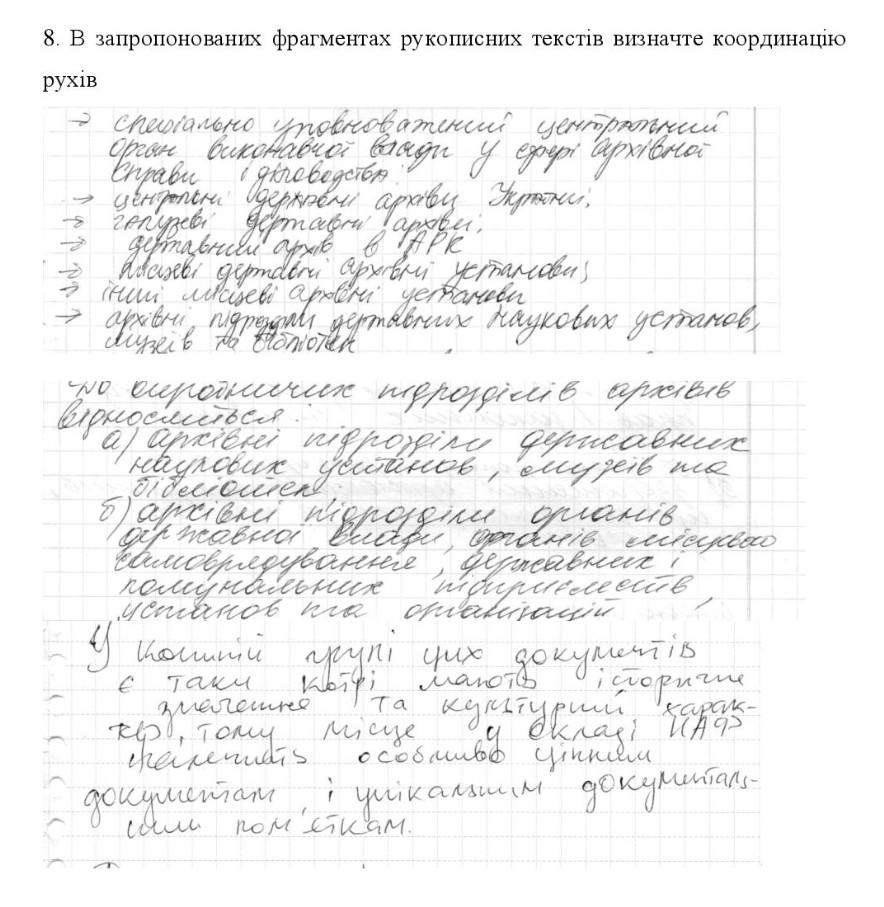 8. В запропонованих фрагментах рукописних текстів визначте координацію
рухів
→ спеціально уповноважений центральний
орган виконавчої влади у сфері архівної
справи і діловодства
→ центральні державні архіви України;
→ галузеві державні архіви;
→ державний архів в АРК
→ місцеві державні архівні установи;
→ інші місцеві архівні установи
→ архівні підрозділи державних наукових установ,
музеїв та бібліотек
До підрозділів архівів
відноситься
а) архівні підрозділи державних
наукових установ, музеїв та
бібліотек;
б) архівні підрозділи органів
державної влади, органів місцевого
самоврядування, державних і
комунальних підприємств,
установ та організацій
У кожній групі цих документів
є таки котрі мають історичне
значення та культурний харак-
тер, тому місце у складі НАФ
належить особливо цінним
документам, і унікальним документаль-
ним пам'яткам.